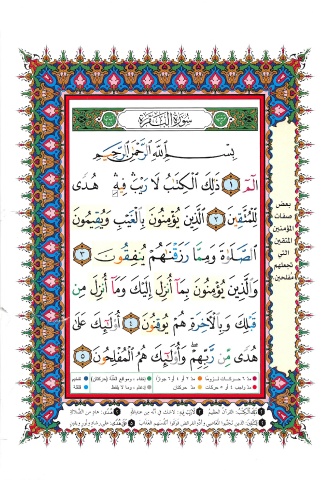 سُورَةُ الْبَقَرَةِ
بِسْمِ اللَّهِ الرَّحْمَٰنِ الرَّحِيمِ
الٓمٓ ١ ذَٰلِكَ الْكِتَٰبُ لَا رَيْبَ فِيهِ هُدًى
لِّلْمُتَّقِينَ ٢ الَّذِينَ يُؤْمِنُونَ بِالْغَيْبِ وَيُقِيمُونَ
الصَّلَوٰةَ وَمِمَّا رَزَقْنَٰهُمْ يُنفِقُونَ ٣
وَالَّذِينَ يُؤْمِنُونَ بِمَآ أُنزِلَ إِلَيْكَ وَمَآ أُنزِلَ مِن
قَبْلِكَ وَبِالْآخِرَةِ هُمْ يُوقِنُونَ ٤ أُو۟لَٰٓئِكَ عَلَىٰ
هُدًى مِّن رَّبِّهِمْ وَأُو۟لَٰٓئِكَ هُمُ الْمُفْلِحُونَ ٥
بعض
صفات
المؤمنين
المتقين
التي
تجعلهم
مفلحين